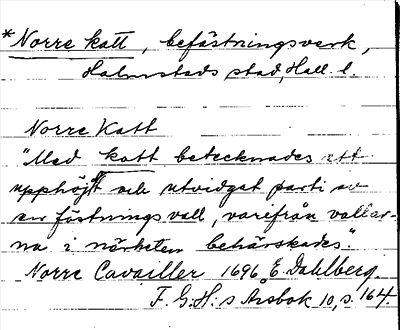 *Norre katt, befästningsverk,
Halmstads stad, Hall. l.
Norre Katt
"Med katt betecknades ett
upphöjt och utvidgat parti av
en fästningsvall, varefrån vallar-
na i närheten behärskades."
Norre Cavailler 1696, E. Dahlberg.
F. G. H:s Årsbok 10, s. 164.